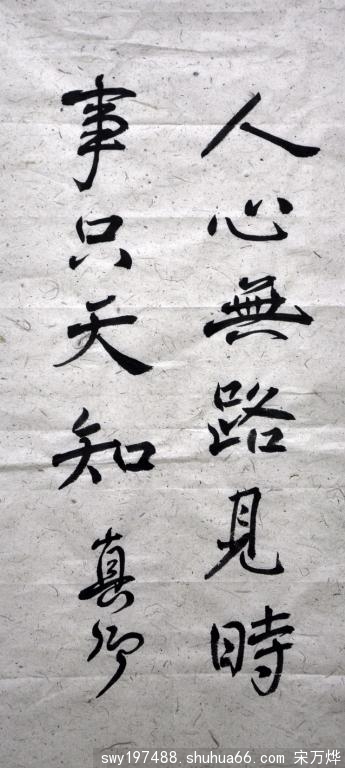 人心無路見時
事只天知
真卿
swy197488.shuhua66.com 宋万烨